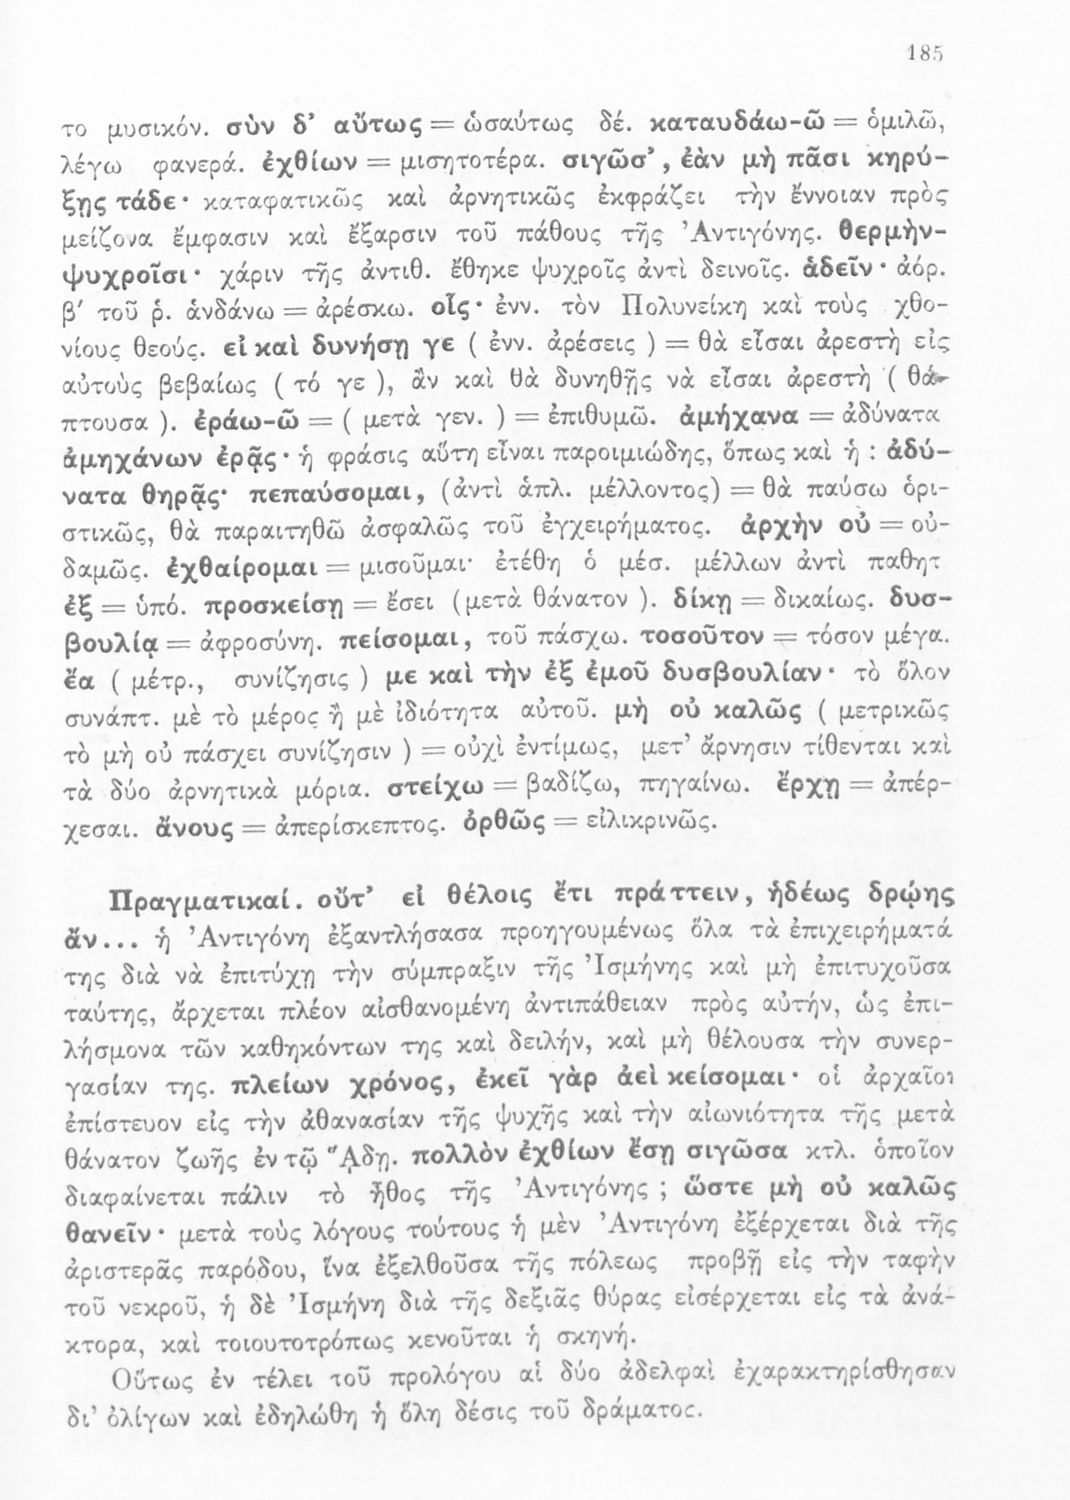 185
το μυσικόν. σὺν δ' αὔτως = ὡσαύτως δέ. καταυδάω-ῶ = ὁμιλῶ,
λέγω φανερά. ἐχθίων = μισητοτέρα. σιγῶσ', ἐὰν μὴ πᾶσι κηρύ-
ξῃς τάδε· καταφατικῶς καὶ ἀρνητικῶς ἐκφράζει τὴν ἔννοιαν πρὸς
μείζονα ἔμφασιν καὶ ἔξαρσιν τοῦ πάθους τῆς Ἀντιγόνης. θερμὴν-
ψυχροῖσι· χάριν τῆς ἀντιθ. ἔθηκε ψυχροῖς ἀντὶ δεινοῖς. ἁδεῖν· ἀόρ.
β' τοῦ ῥ. ἁνδάνω = ἀρέσκω. οἷς· ἐνν. τὸν Πολυνείκη καὶ τοὺς χθο-
νίους θεούς. εἰ καὶ δυνήσῃ γε ( ἐνν. ἀρέσεις ) = θὰ εἶσαι ἀρεστὴ εἰς
αὐτοὺς βεβαίως ( τό γε ), ἂν καὶ θὰ δυνηθῇς νὰ εἶσαι ἀρεστὴ ( θά-
πτουσα ). ἐράω-ῶ = ( μετὰ γεν. ) = ἐπιθυμῶ. ἀμήχανα = ἀδύνατα
ἀμηχάνων ἐρᾷς· ἡ φράσις αὕτη εἶναι παροιμιώδης, ὅπως καὶ ἡ : ἀδύ-
νατα θηρᾷς· πεπαύσομαι, (ἀντὶ ἁπλ. μέλλοντος) = θὰ παύσω ὁρι-
στικῶς, θὰ παραιτηθῶ ἀσφαλῶς τοῦ ἐγχειρήματος. ἀρχὴν οὐ = οὐ-
δαμῶς. ἐχθαίρομαι = μισοῦμαι· ἐτέθη ὁ μέσ. μέλλων ἀντὶ παθητ
ἐξ = ὑπό. προσκείσῃ = ἔσει (μετὰ θάνατον ). δίκῃ = δικαίως. δυσ-
βουλίᾳ = ἀφροσύνη. πείσομαι, τοῦ πάσχω. τοσοῦτον = τόσον μέγα.
ἔα ( μέτρ., συνίζησις ) με καὶ τὴν ἐξ ἐμοῦ δυσβουλίαν· τὸ ὅλον
συνάπτ. μὲ τὸ μέρος ἢ μὲ ἰδιότητα αὐτοῦ. μὴ οὐ καλῶς ( μετρικῶς
τὸ μὴ οὐ πάσχει συνίζησιν ) = οὐχὶ ἐντίμως, μετ' ἄρνησιν τίθενται καὶ
τὰ δύο ἀρνητικὰ μόρια. στείχω = βαδίζω, πηγαίνω. ἔρχῃ = ἀπέρ-
χεσαι. ἄνους = ἀπερίσκεπτος. ὀρθῶς = εἰλικρινῶς.
Πραγματικαί. οὔτ' εἰ θέλοις ἔτι πράττειν, ἡδέως δρῴης
ἄν... ἡ Ἀντιγόνη ἐξαντλήσασα προηγουμένως ὅλα τὰ ἐπιχειρήματά
της διὰ νὰ ἐπιτύχῃ τὴν σύμπραξιν τῆς Ἰσμήνης καὶ μὴ ἐπιτυχοῦσα
ταύτης, ἄρχεται πλέον αἰσθανομένη ἀντιπάθειαν πρὸς αὐτήν, ὡς ἐπι-
λήσμονα τῶν καθηκόντων της καὶ δειλήν, καὶ μὴ θέλουσα τὴν συνερ-
γασίαν της. πλείων χρόνος, ἐκεῖ γὰρ ἀεὶ κείσομαι· οἱ ἀρχαῖοι
ἐπίστευον εἰς τὴν ἀθανασίαν τῆς ψυχῆς καὶ τὴν αἰωνιότητα τῆς μετὰ
θάνατον ζωῆς ἐν τῷ Ἅδῃ. πολλὸν ἐχθίων ἔσῃ σιγῶσα κτλ. ὁποῖον
διαφαίνεται πάλιν τὸ ἦθος τῆς Ἀντιγόνης ; ὥστε μὴ οὐ καλῶς
θανεῖν· μετὰ τοὺς λόγους τούτους ἡ μὲν Ἀντιγόνη ἐξέρχεται διὰ τῆς
ἀριστερᾶς παρόδου, ἵνα ἐξελθοῦσα τῆς πόλεως προβῇ εἰς τὴν ταφὴν
τοῦ νεκροῦ, ἡ δὲ Ἰσμήνη διὰ τῆς δεξιᾶς θύρας εἰσέρχεται εἰς τὰ ἀνά-
κτορα, καὶ τοιουτοτρόπως κενοῦται ἡ σκηνή.
Οὕτως ἐν τέλει τοῦ προλόγου αἱ δύο ἀδελφαὶ ἐχαρακτηρίσθησαν
δι' ὀλίγων καὶ ἐδηλώθη ἡ ὅλη δέσις τοῦ δράματος.